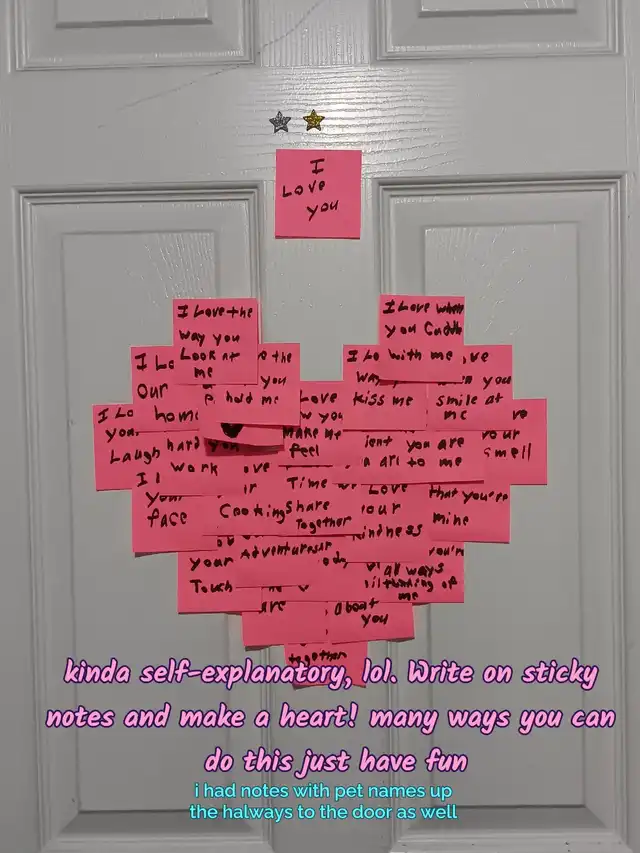 I
Love
you
I Love the
way you
Look at
me
I Love when
you Cuddle
with me
I Lo
our
home
the
you
hold me
I Lo
way
kiss me
ve
you
smile at
me
I Lo
you
Laugh
hard you
work
Love
you
make me
feel
you are
art to me
your
smell
your
face
Cooking
Time
Share
Together
Love
your
kindness
that you're
mine
your
Touch
Adventures
you're
all ways
thinking of
me
are
about
you
together
kinda self-explanatory, lol. Write on sticky
notes and make a heart! many ways you can
do this just have fun
i had notes with pet names up
the halways to the door as well